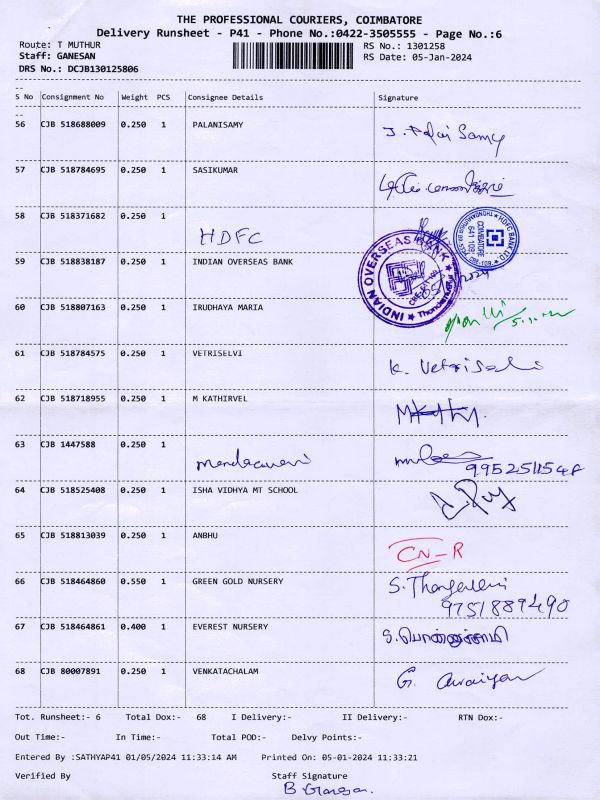 THE PROFESSIONAL COURIERS, COIMBATORE
Delivery Runsheet - P41 - Phone No.:0422-3505555 - Page No.:6
Route: T MUTHUR RS No.: 1301258
Staff: GANESAN RS Date: 05-Jan-2024
DRS No.: DCJB130125806
--
S No Consignment No Weight PCS Consignee Details Signature
--
56 CJB 518688009 0.250 1 PALANISAMY J. Palai Samy
57 CJB 518784695 0.250 1 SASIKUMAR
58 CJB 518371682 0.250 1 HDFC
HDFC BANK LTD. COIMBATORE 641 109
59 CJB 518838187 0.250 1 INDIAN OVERSEAS BANK
INDIAN OVERSEAS BANK
60 CJB 518807163 0.250 1 IRUDHAYA MARIA
61 CJB 518784575 0.250 1 VETRISELVI K. Vetriselvi
62 CJB 518718955 0.250 1 M KATHIRVEL
63 CJB 1447588 0.250 1
64 CJB 518525408 0.250 1 ISHA VIDHYA MT SCHOOL
65 CJB 518813039 0.250 1 ANBHU CN-R
66 CJB 518464860 0.550 1 GREEN GOLD NURSERY
9751889490
67 CJB 518464861 0.400 1 EVEREST NURSERY
68 CJB 80007891 0.250 1 VENKATACHALAM
Tot. Runsheet:- 6 Total Dox:- 68 I Delivery:- II Delivery:- RTN Dox:-
Out Time:- In Time:- Total POD:- Delvy Points:-
Entered By :SATHYAP41 01/05/2024 11:33:14 AM Printed On: 05-01-2024 11:33:21
Verified By Staff Signature
B Ganesan.